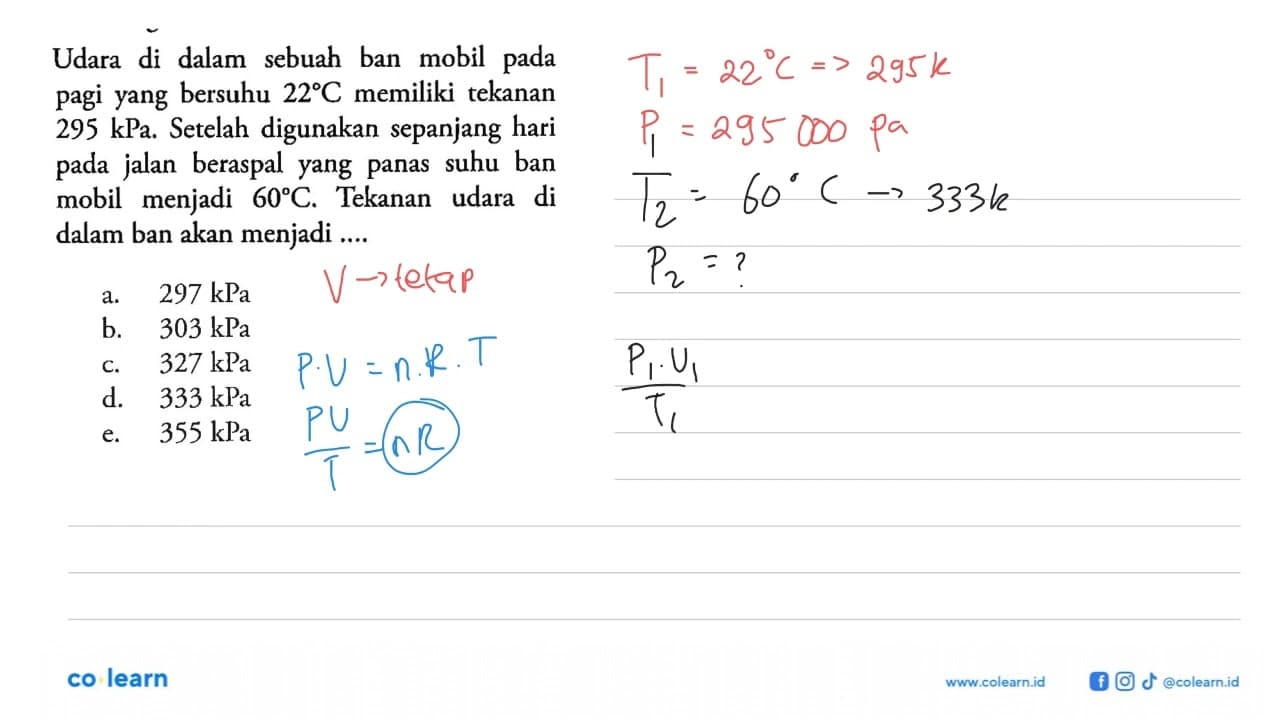 Udara di dalam sebuah ban mobil pada
pagi yang bersuhu 22°C memiliki tekanan
295 kPa. Setelah digunakan sepanjang hari
pada jalan beraspal yang panas suhu ban
mobil menjadi 60°C. Tekanan udara di
dalam ban akan menjadi ....
a. 297 kPa
b. 303 kPa
c. 327 kPa
d. 333 kPa
e. 355 kPa
V → tetap
P.V = n.R.T
PV
T
= nR
T1 = 22°C => 295k
P1 = 295 000 pa
T2 = 60°C → 333k
P2 = ?
P1.V1
T1
co learn
www.colearn.id
@colearn.id